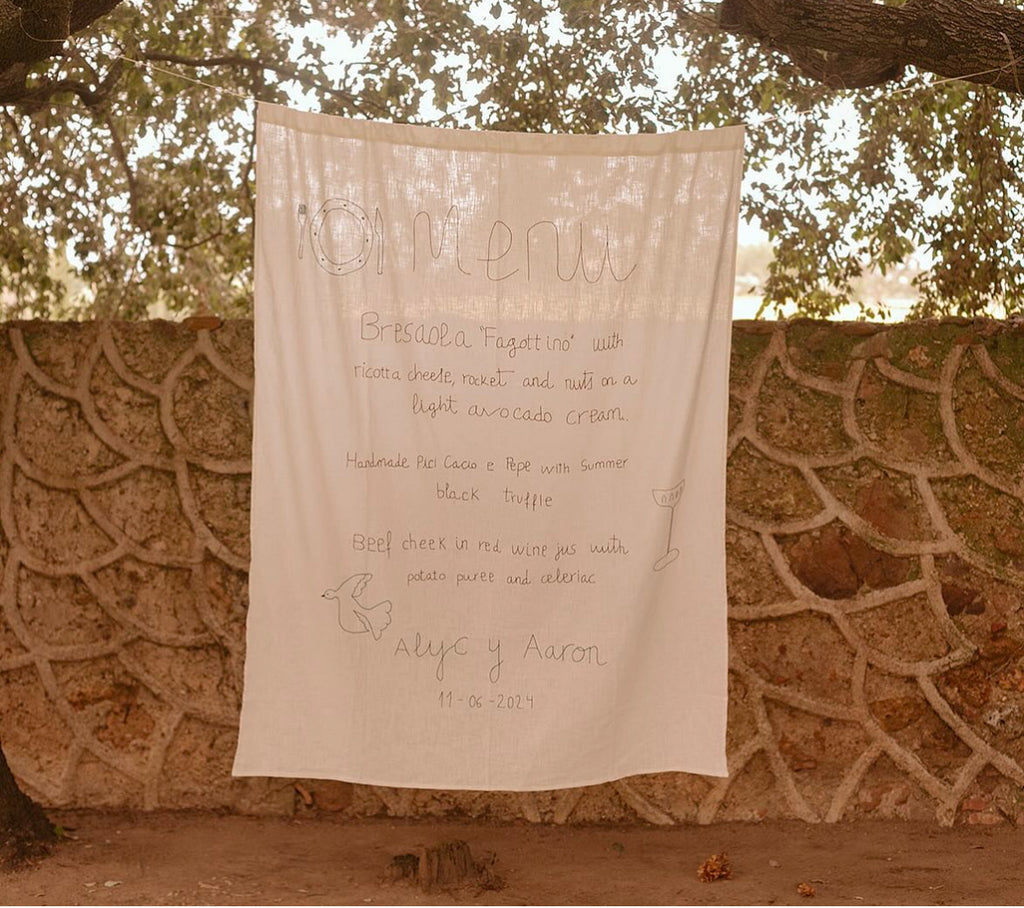 Menu
Bresaola "Fagottino" with
ricotta cheese, rocket and nuts on a
light avocado cream.
Handmade Pici Cacio e Pepe with Summer
black truffle
Beef cheek in red wine jus with
potato puree and celeriac
Alyc y Aaron
11-06-2024